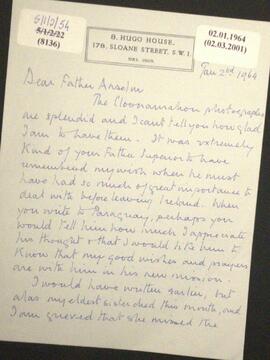 5/1/2/54
5/1/2/22
(8136)
02.01.1964
(02.03.2001)
8. HUGO HOUSE,
178, SLOANE STREET, S.W.1.
Jan 2nd 1964
Dear Father Anselm
The Clonmacnoise photographs
are splendid and I can't tell you how glad
I am to have them. It was extremely
kind of your Father Superior to have
remembered my wish when he must
have had so much of great importance to
deal with before leaving Ireland. When
you write to Paraguay, perhaps you
would tell him how much I appreciate
his thought & that I would like him to
know that my good wishes and prayers
are with him in his new mission.
I would have written earlier, but
alas my eldest sister died this month, and
I am grieved that she missed the